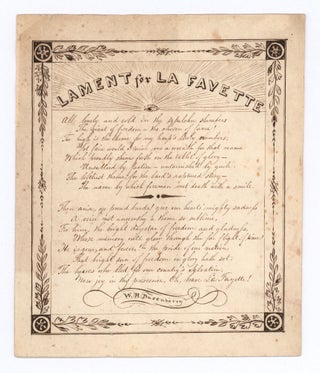 LAMENT for LA FAYETTE
All lonely and cold in the sepulcher slumbers
The giant of freedom – the chosen of fame!
Too high is the theme for my harp's lowly numbers,
Yet fain would I twine one wreath for that name
Which proudly shines forth on the tablet of glory –
Unsullied by faction – untarnished by guilt
The loftiest theme for the bard's raptured story –
The name by which freemen met death with a smile.
Then arise, ye bound hearts! give our heart's mighty sadness
A voice not unworthy a theme so sublime,
To hymn the bright daystar of freedom and gladness,
Whose memory will glow through the far flight of time!
He is gone, and forever to the pride of our nation
That bright sun of freedom in glory hath set:
The heroes who bled for our country's salvation
Now joy in thy presence, Oh, brave La Fayette!
W. H.